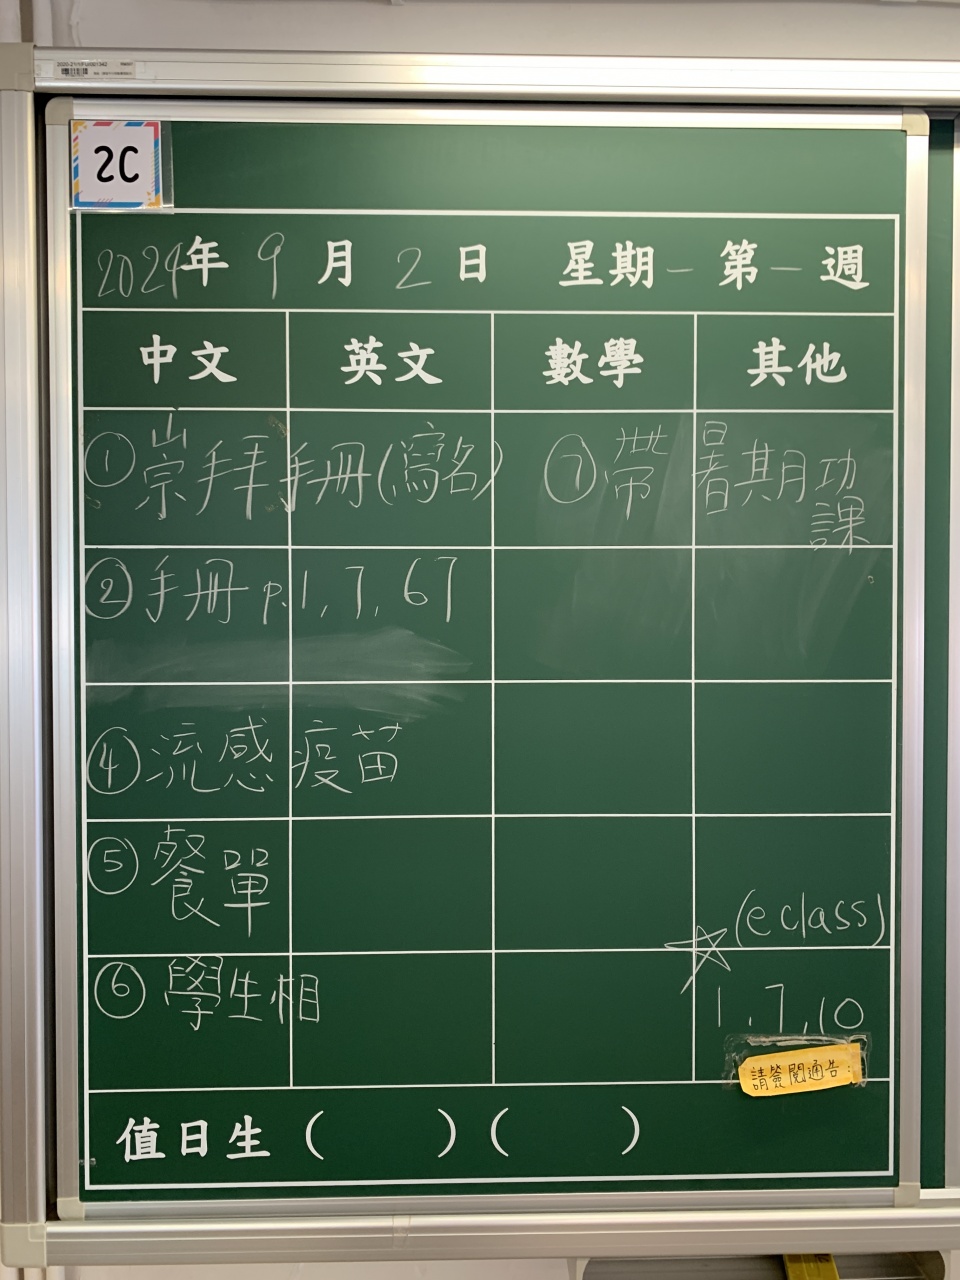 2C
2024年 9 月 2 日 星期一 第一週
中文 英文 數學 其他
① 崇拜手冊(寫名) ⑦ 帶暑期功課
② 手冊 p.1, 7, 67
④ 流感疫苗
⑤ 餐單
(eclass)
⑥ 學生相
☆ 1, 7, 10
請簽閱通告:
值日生 ( ) ( )